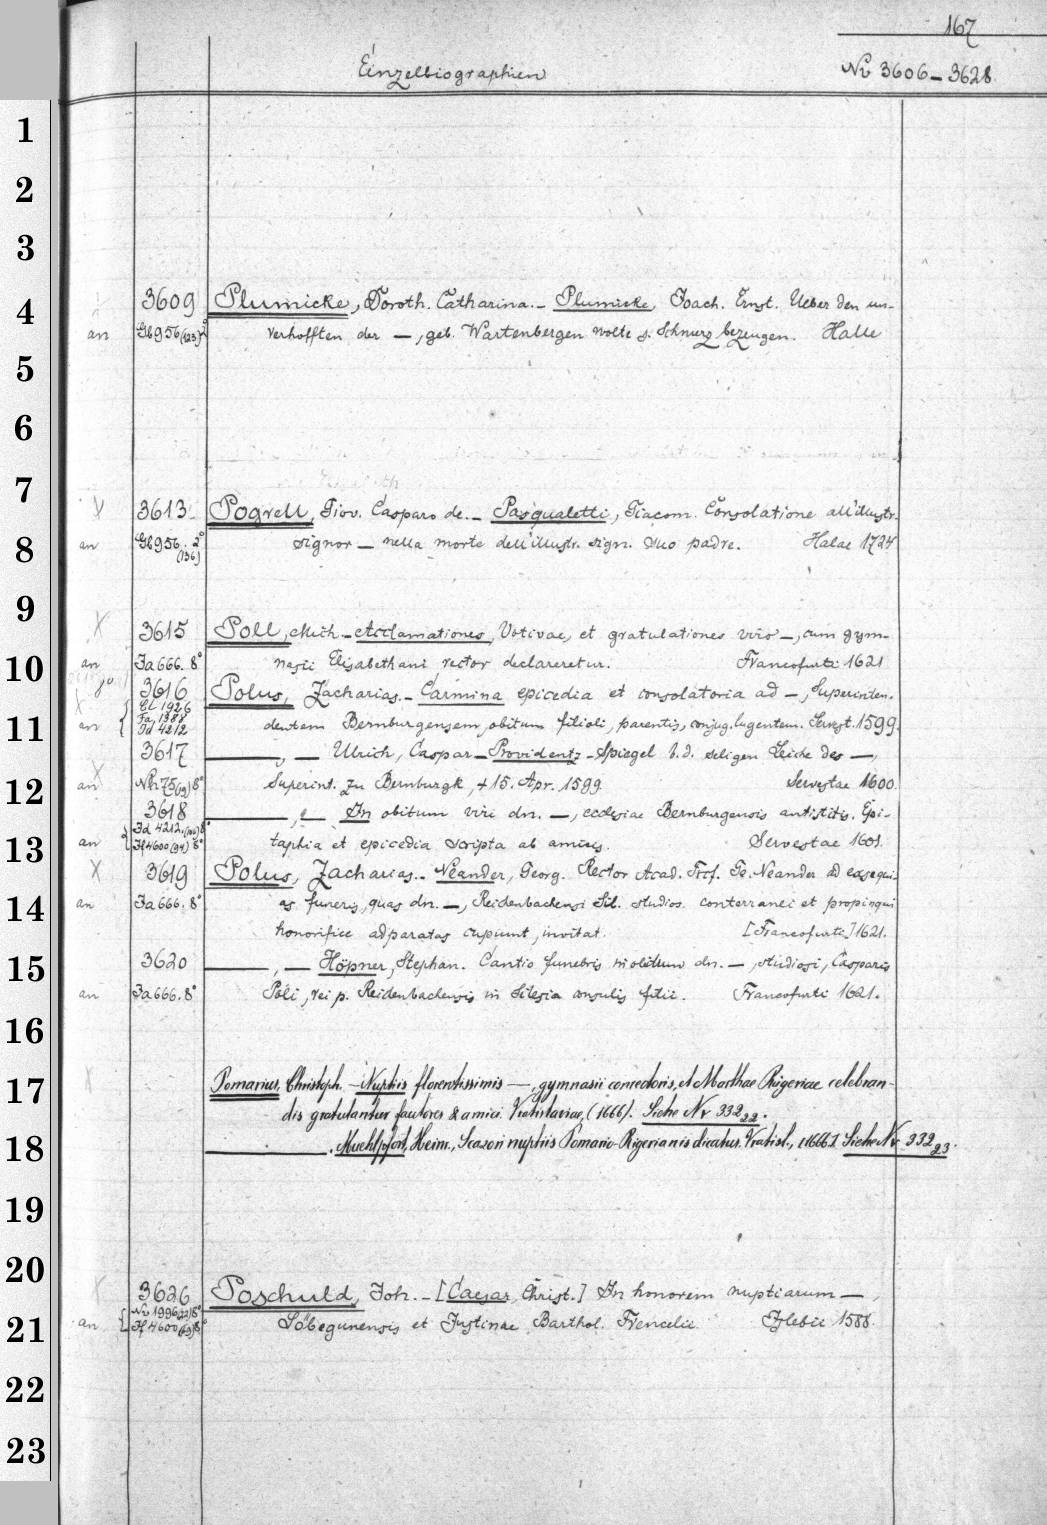 167
Einzelbiographien
Nr 3606-3628
1
2
3
3609 Plumicke, Doroth. Catharina. - Plumicke, Joach. Ernst. Ueber den un-
4
an Gb 956 (123) 2° verhofften der —, geb. Wartenbergen wolte s. Schmerz bezeugen. Halle
5
6
7
3613 Pogrell, Giov. Casparo de. - Pasqualetti, Giacom. Consolatione all'illustr.
8
an Gb 956. 2° signor — nella morte dell'illustr. sign. suo padre. Halae 1724
(136)
9
3615 Poll, Mich. - Acclamationes, Votivae, et gratulationes viro —, cum gym-
10
an Ja 666. 8° nasii Elisabethani rector declareretur. Francofurti 1621
3616 Polus, Zacharias. - Carmina epicedia et consolatoria ad —, Superinten-
11
an dentem Bernburgensem, obitum filioli, parentis, conjug. lugentem. Servest. 1599.
3617 —, — Ulrich, Caspar - Providentz-Spiegel b. d. seligen Leiche des —,
12
an Nh 75 (9) 8° Superint. zu Bernburgk, + 15. Apr. 1599. Servestae 1600.
3618 —, — In obitum viri dn. —, ecclesiae Bernburgensis antistitis. Epi-
13
an Jd 4212. 8°
Jf 4600 (94) 8° taphia et epicedia scripta ab amicis. Servestae 1601.
3619 Polus, Zacharias. - Neander, Georg. Rector Acad. Frcf. Ge. Neander ad exsequi-
14
an Ja 666. 8° as funeris, quas dn. —, Reichenbachensi Sil. studios. conterranei et propinqui
honorifice adparatas cupiunt, invitat. [Francofurti] 1621.
15
3620 —, — Höpner, Stephan. Cantio funebris in obitum dn. —, studiosi, Casparis
an Ja 666. 8° Poli, rei p. Reichenbachensis in Silesia consulis filii. Francofurti 1621.
16
17
Pomarius, Christoph. - Nuptiis florentissimis —, gymnasii conrectoris, et Marthae Rigeriae celebran-
dis gratulantur fautores & amici. Vratislaviae, (1666). Siehe Nr 332 22.
18
—. Muehlpfort, Heinr., Scazon nuptiis Pomario-Rigerianis dicatus. Vratisl., [1666]. Siehe Nr 332 23.
19
20
3626 Poschuld, Joh. - [Caesar, Christ.] In honorem nuptiarum —,
21
an Nv 1996 (22) 8°
Jf 4600 (69) 8° Löbegunensis et Justinae Barthol. Frencelii. Islebii 1588.
22
23